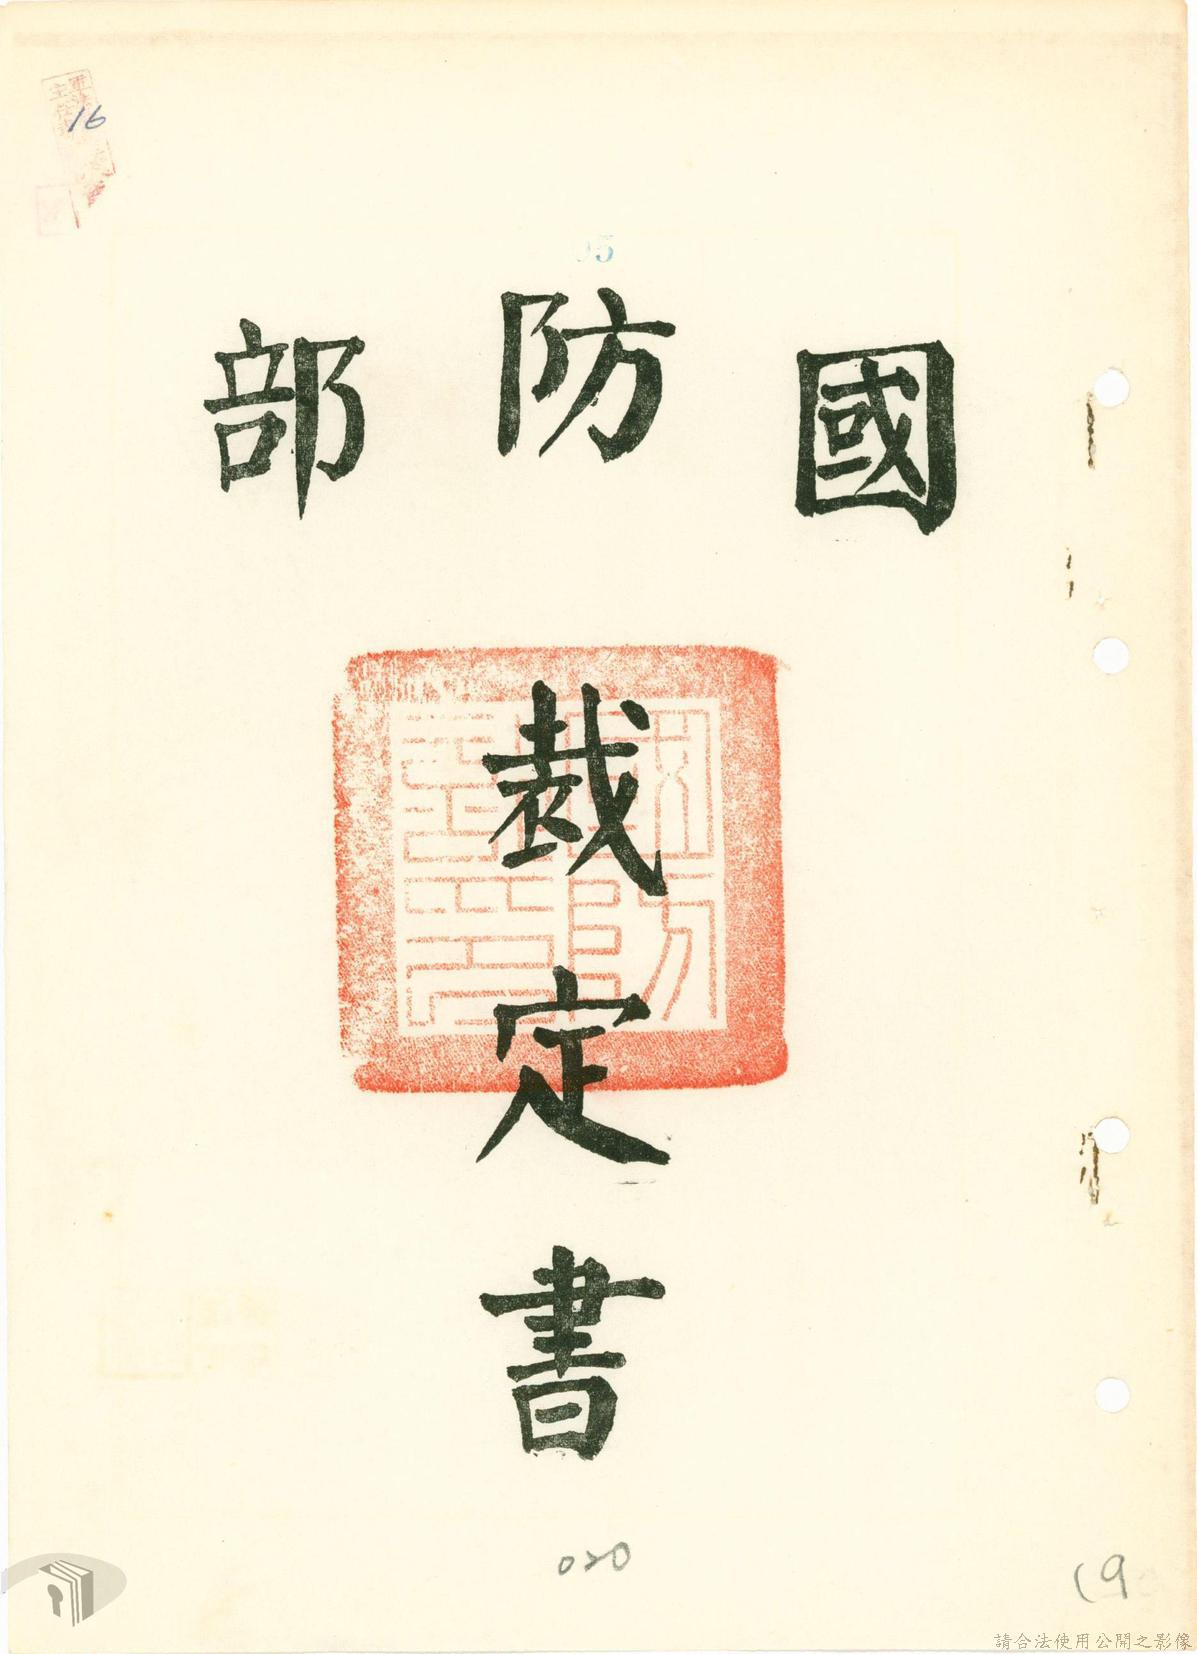 16
95
國防部
裁定書
020
19
請合法使用公開之影像